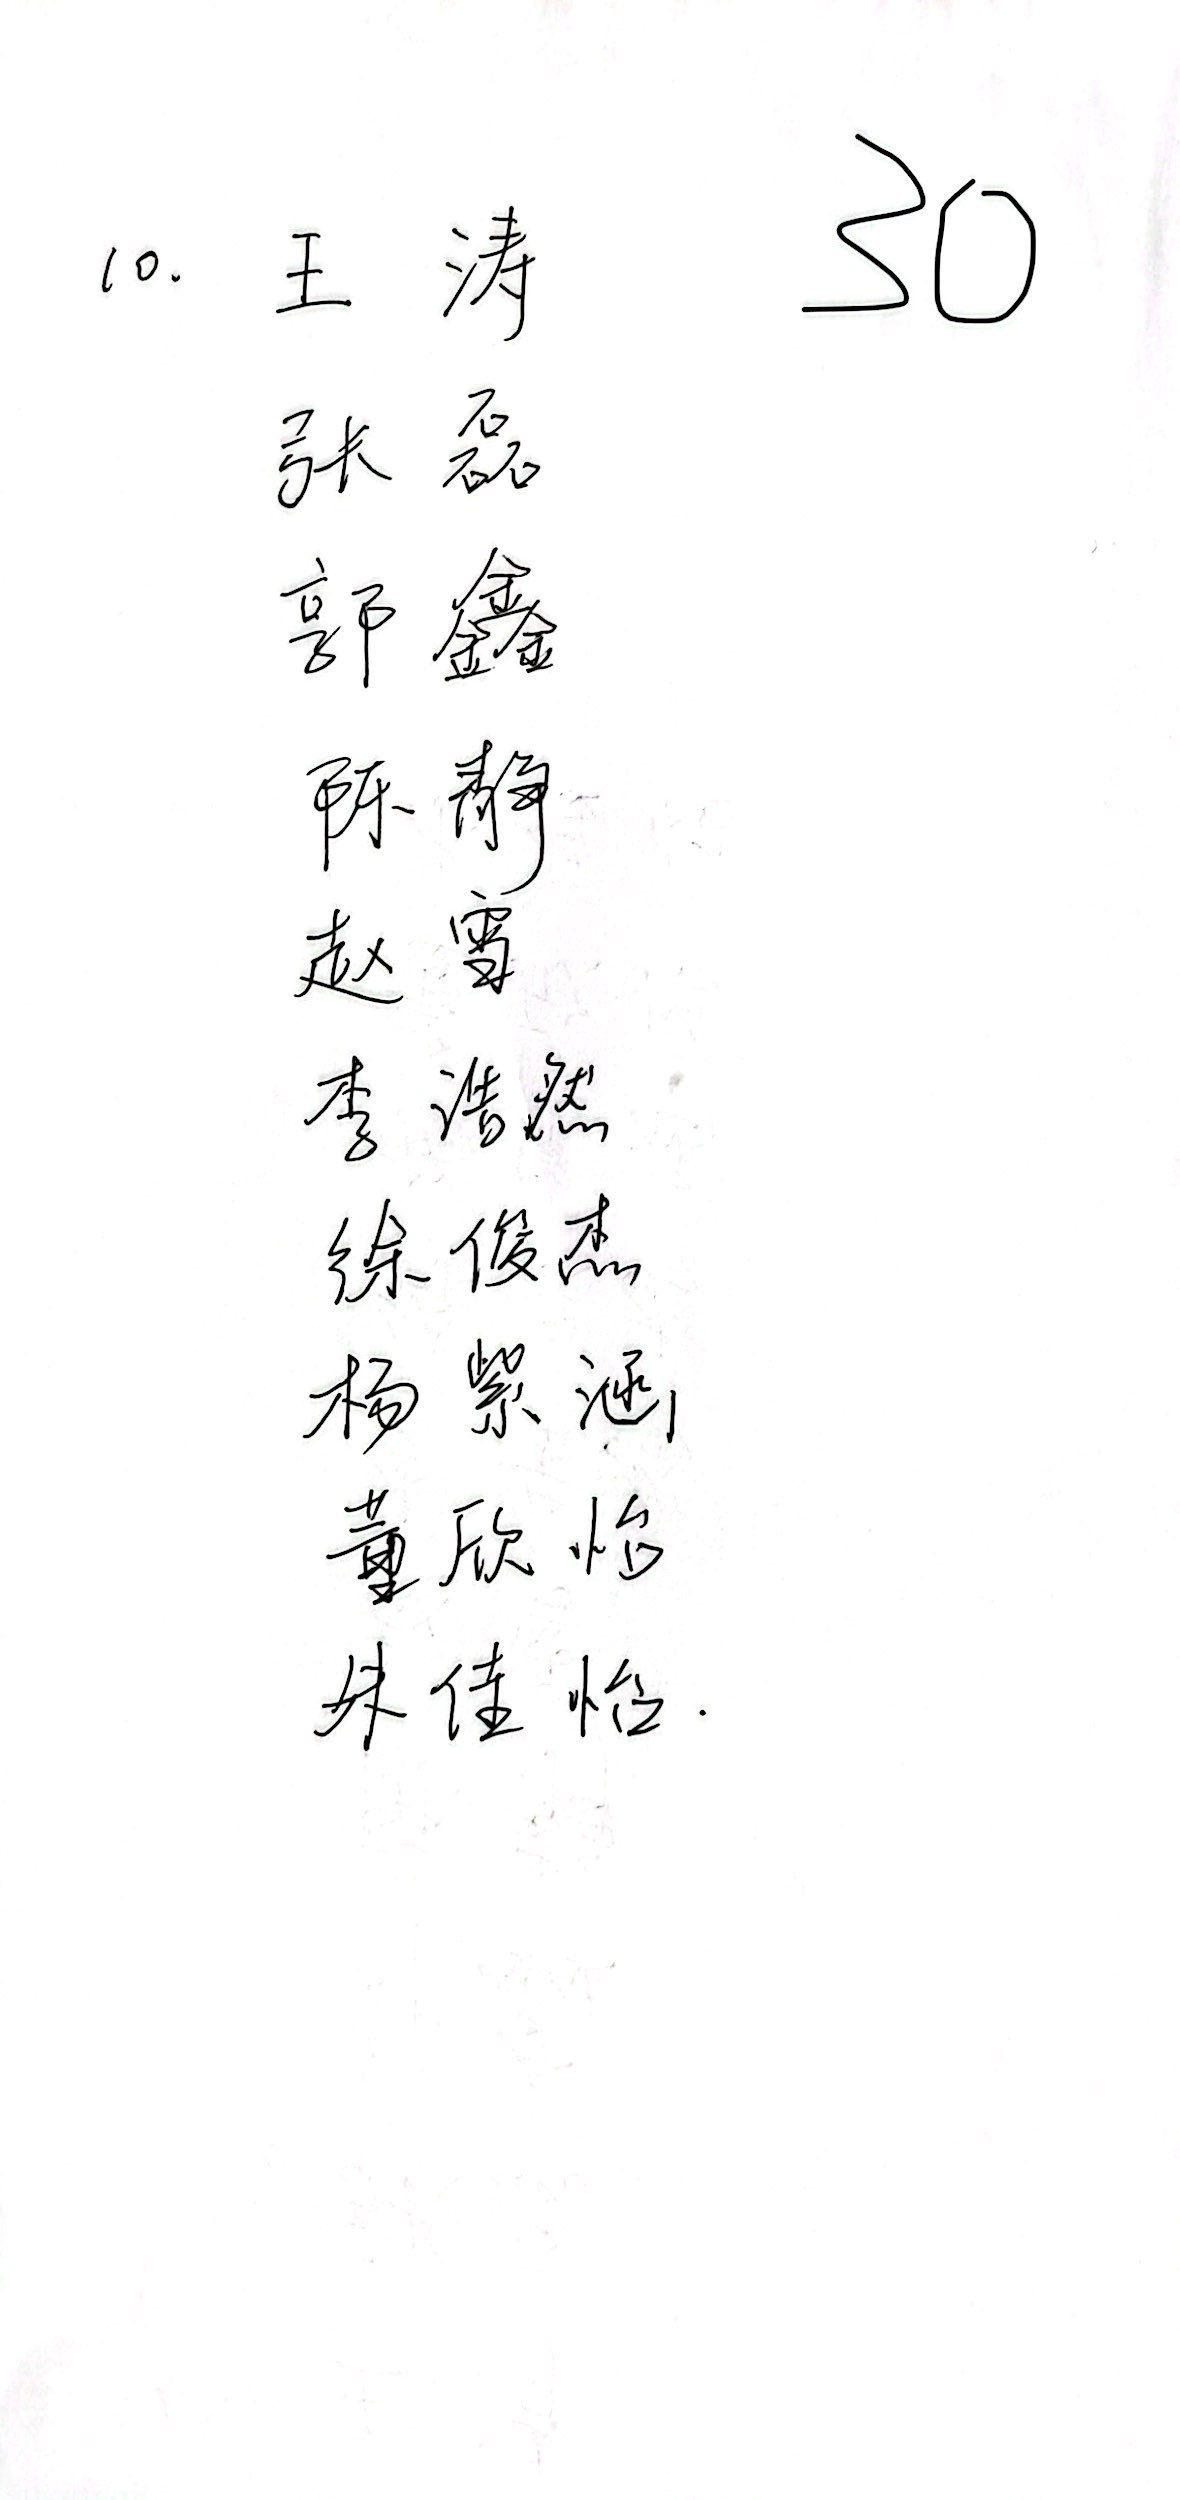 30
10. 王 涛
张 磊
郭 鑫
陈 静
赵 雪
李 浩然
徐 俊杰
杨 紫涵
董 欣怡
朱佳怡.